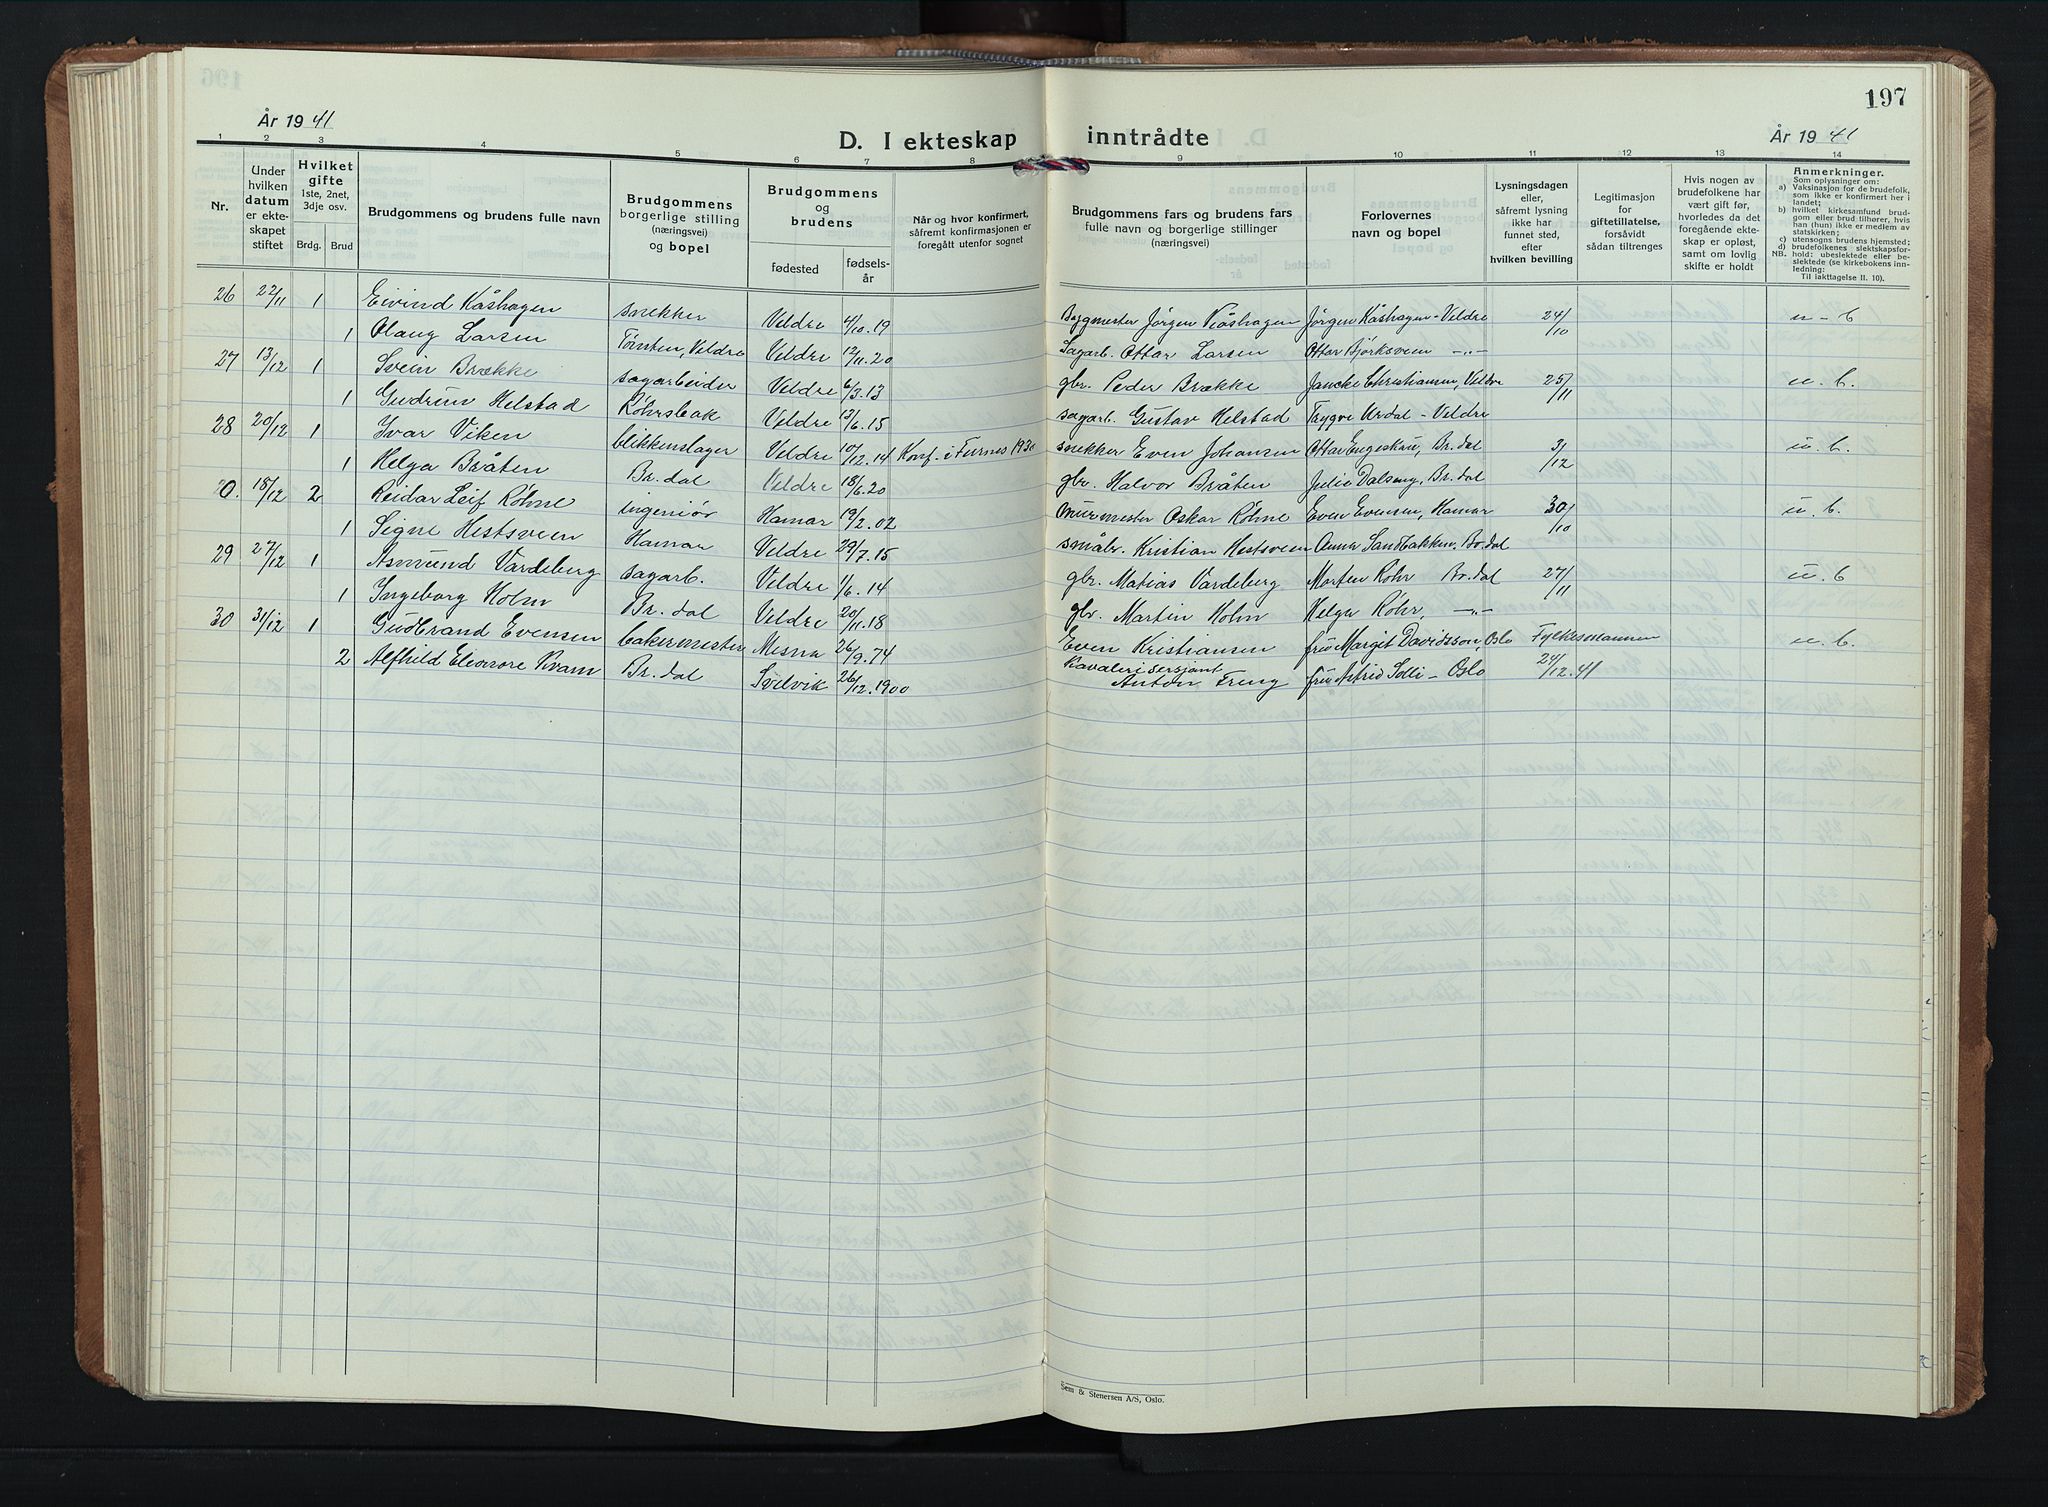 197
År 1941
D. I ekteskap inntrådte
År 1941
1 2 3 4 5 6 7 8 9 10 11 12 13 14
Nr.
Under hvilken datum er ekteskapet stiftet
Hvilket gifte 1ste, 2net, 3dje osv.
Brdg. Brud
Brudgommens og brudens fulle navn
Brudgommens borgerlige stilling (næringsvei) og bopel
Brudgommens og brudens
fødested
fødselsår
Når og hvor konfirmert, såfremt konfirmasjonen er foregått utenfor sognet
Brudgommens fars og brudens fars fulle navn og borgerlige stillinger (næringsvei)
Forlovernes navn og bopel
Lysningsdagen eller, såfremt lysning ikke har funnet sted, efter hvilken bevilling
Legitimasjon for giftetillatelse, forsåvidt sådan tiltrenges
Hvis nogen av brudefolkene har vært gift før, hvorledes da det foregående ekteskap er opløst, samt om lovlig skifte er holdt
Anmerkninger.
Som oplysninger om:
a) Vaksinasjon for de brudefolk, som ikke er konfirmert her i landet;
b) hvilket kirkesamfund brudgom eller brud tilhører, hvis han (hun) ikke er medlem av statskirken;
c) utensogns brudens hjemsted;
d) brudefolkenes slektskapsforhold: ubeslektede eller beslektede (se kirkebokens innledning:
NB. Til iakttagelse II. 10).
26 22/11 1 Eivind Kåshagen snekker Veldre 4/10.19 Bygmester Jørgen Kåshagen Jørgen Kåshagen - Veldre 24/10 u - b
1 Olaug Larsen Tømten, Veldre Veldre 12/11.20 Sagarb. Ottar Larsen Ottar Bjørksveen -"-
27 13/12 1 Svein Brække sagarbeider Veldre 6/3.13 gbr. Peder Brække Jancke Christiansen, Veldre 25/11 u. b.
1 Gudrun Helstad Røhrsbak Veldre 13/6.15 sagarb. Gustav Helstad Trygve Urdal - Veldre
28 20/12 1 Ivar Viken blikkenslager Veldre 10/12.14 Konf. i Furnes 1930 snekker Even Johansen Ottar Engeskau, Br.dal 3/12 u. b.
1 Helga Bråten Br. dal Veldre 18/6.20 gbr. Halvor Bråten Julie Dalseng, Br. dal
0. 18/12 2 Reidar Leif Røhne ingeniør Hamar 19/2.02 murmester Oskar Røhne Even Evensen, Hamar 30/10 u. b.
1 Signe Hestsveen Hamar Veldre 29/7.15 småbr. Kristian Hestsveen Anna Sandbakken, Br.dal
29 27/12 1 Asmund Vardeberg sagarb. Veldre 1/6.14 gbr. Matias Vardeberg Morten Røhr Br.dal 27/11 u. b
1 Ingeborg Holm Br. dal Veldre 20/11.18 gbr. Martin Holm Helga Røhr, -"-
30 31/12 1 Gudbrand Evensen bakermester Mesna 26/9.74 Even Kristiansen fru Margit Davidsson, Oslo Fylkesmannen u. b.
2 Alfhild Eleonore Kvam Br. dal Svelvik 26/12.1900 Kavalerisersjant Anton Freng fru Astrid Solli - Oslo 24/12.41
Sem & Stenersen A/S, Oslo.